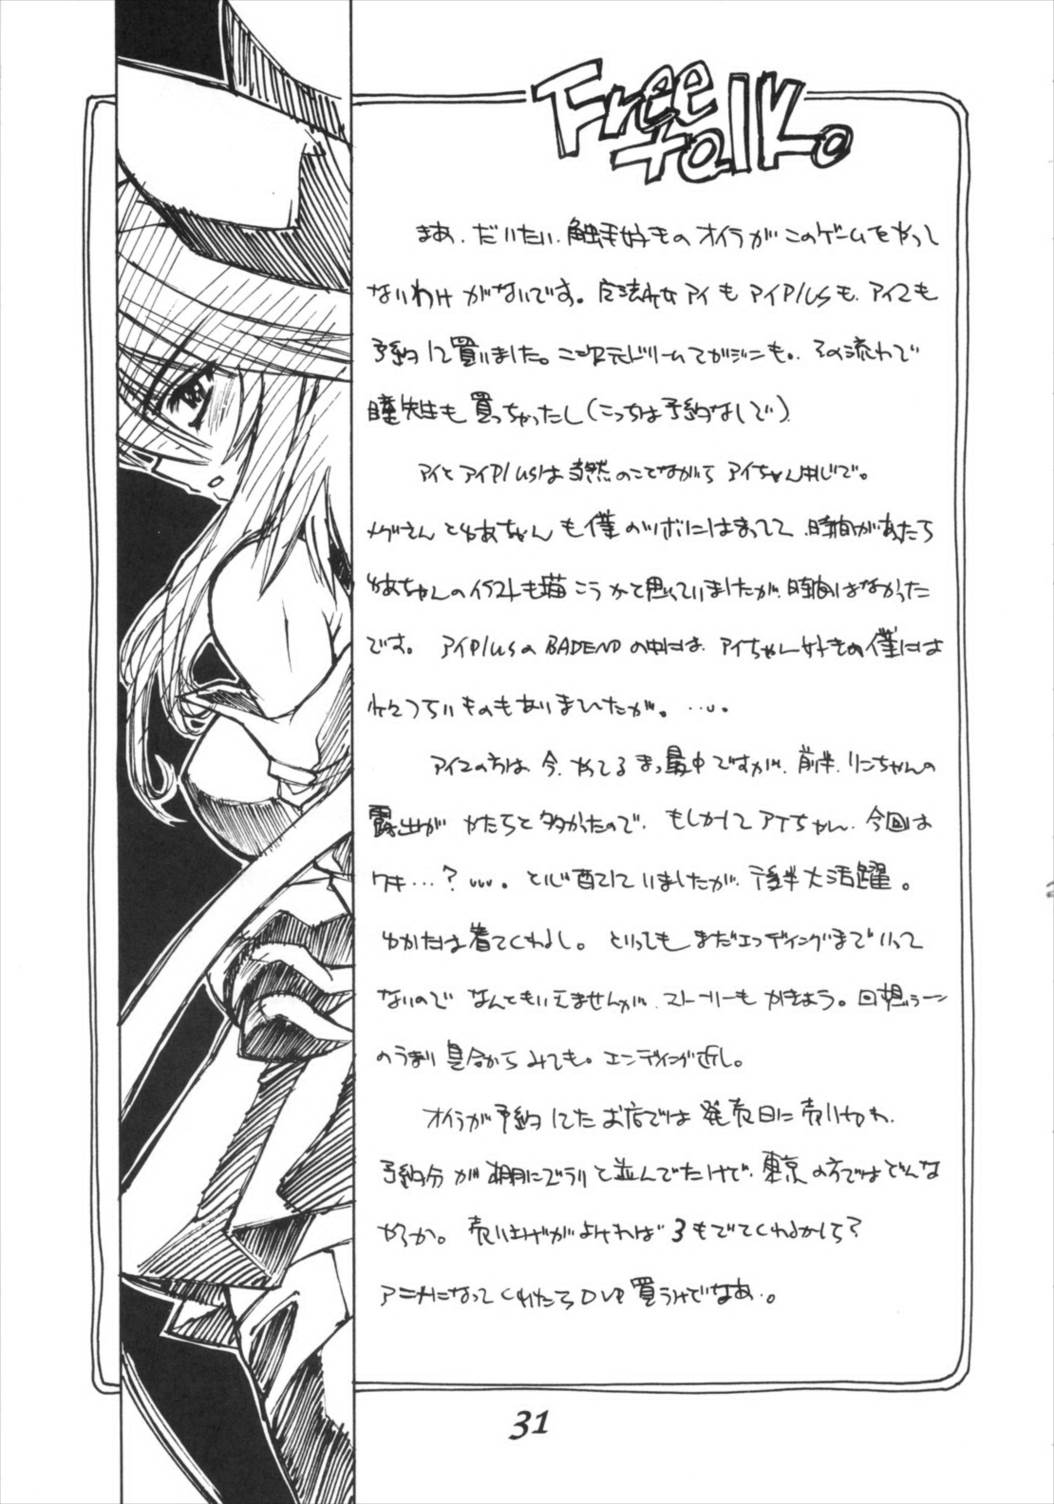 Free
talk。
まあ、だいたい、触手好きのオイラがこのゲームをやって
ないわけがないです。魔法少女アイもアイPlusも、アイ2も
予約して買いました。二次元ドリームマガジンも。その流れで
瞳先生も買っちゃったし(こっちは予約なしで)
アイとアイPlusは当然のことながらアイちゃん中心で。
メグさんとゆあちゃんも僕のツボにはまってて、時間があったら
ゆあちゃんのイラストも描こうかと思っていましたが、時間はなかった
です。アイPlusのBADENDの中には、アイちゃん好きの僕には
ちょっとつらいものもありましたが。…。
アイ2の方は、今、やってるまっ最中ですが、前半、りんちゃんの
露出がかたちと多かったので、もしかしてアイちゃん、今回は
ワキ…?…。と心配していましたが、後半大活躍。
ゆかたは着てくれるし。といってもまだエンディングまでいって
ないのでなんともいえませんが、ストーリーもかきょう。回想シーン
のうまり具合からみても。エンディング近し。
オイラが予約してたお店では発売日に売り切れ、
予約分が棚にズラリと並んでたけど、東京の方ではどんな
やろか。売り上げがよければ3もでてくれるかして?
アニメになってくれたらDVD買うけどなぁ。
31